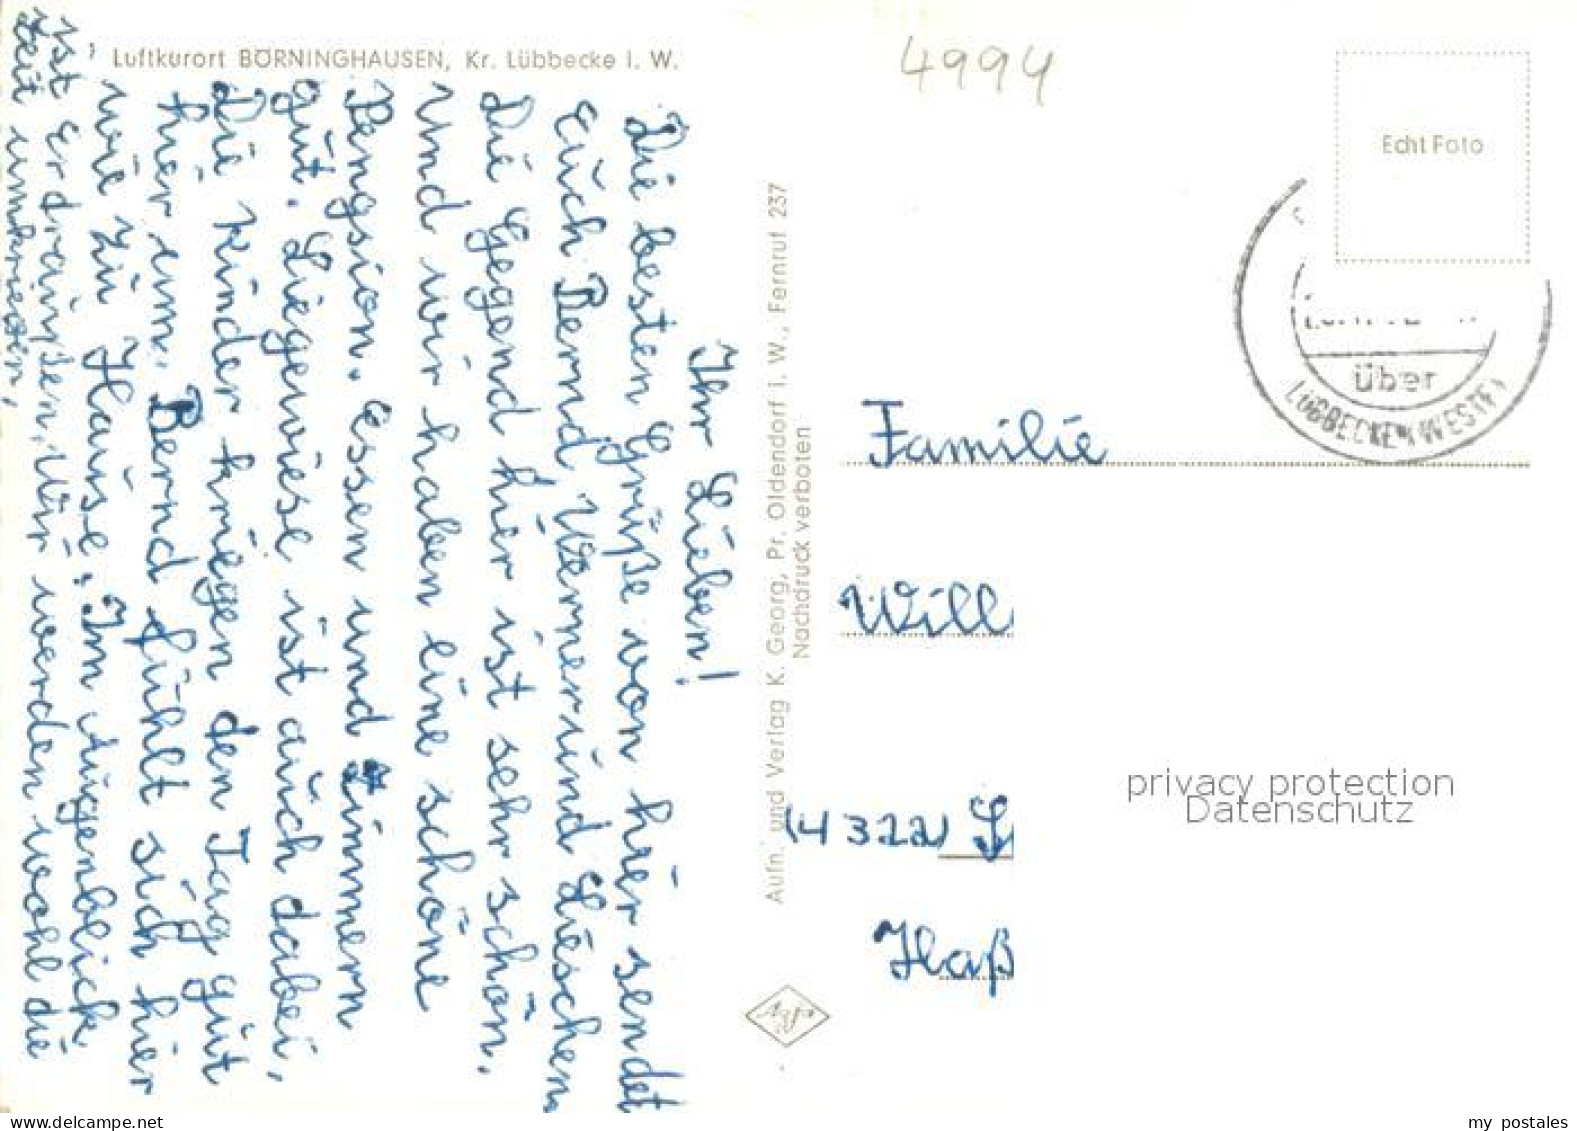 Luftkurort BÖRNINGHAUSEN, Kr. Lübbecke i. W.
4994
Echt Foto
über
LÜBBECKE WESTF
Ihr Lieben!
Die besten Grüße von hier sendet
Euch Bernd Werner und Lieschen.
Die Gegend hier ist sehr schön.
Und wir haben eine schöne
Pengsion. Essen und Zimmern
gut. Liegewiese ist auch dabei,
Die Kinder kriegen den Tag gut
hier um. Bernd fühlt sich hier
wie zu Hause. Im Augenblick
ist Er draußen. Wir werden wohl die
Zeit umkriegen,
Aufn. und Verlag K. Georg, Pr. Oldendorf i. W., Fernruf 237
Nachdruck verboten
Familie
Will
(4322)
Haß
Agfa
privacy protection
Datenschutz
www.delcampe.net
my_postales